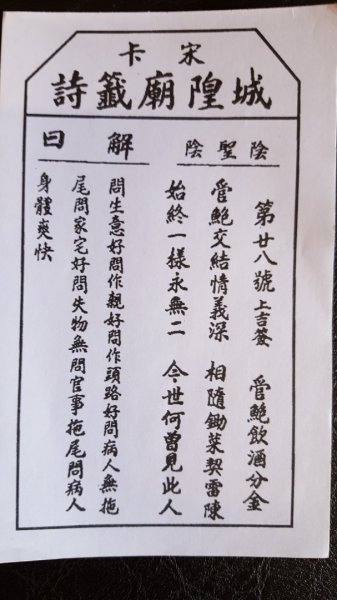 宋卡
城隍廟籤詩
陰聖陰
第廿八號上吉簽 管鮑飲酒分金
管鮑交結情義深 相隨鋤菜契雷陳
始終一樣永無二 今世何曾見此人
解曰
問生意好問作親好問作頭路好問病人無拖
尾問家宅好問失物無問官事拖尾問病人
身體爽快